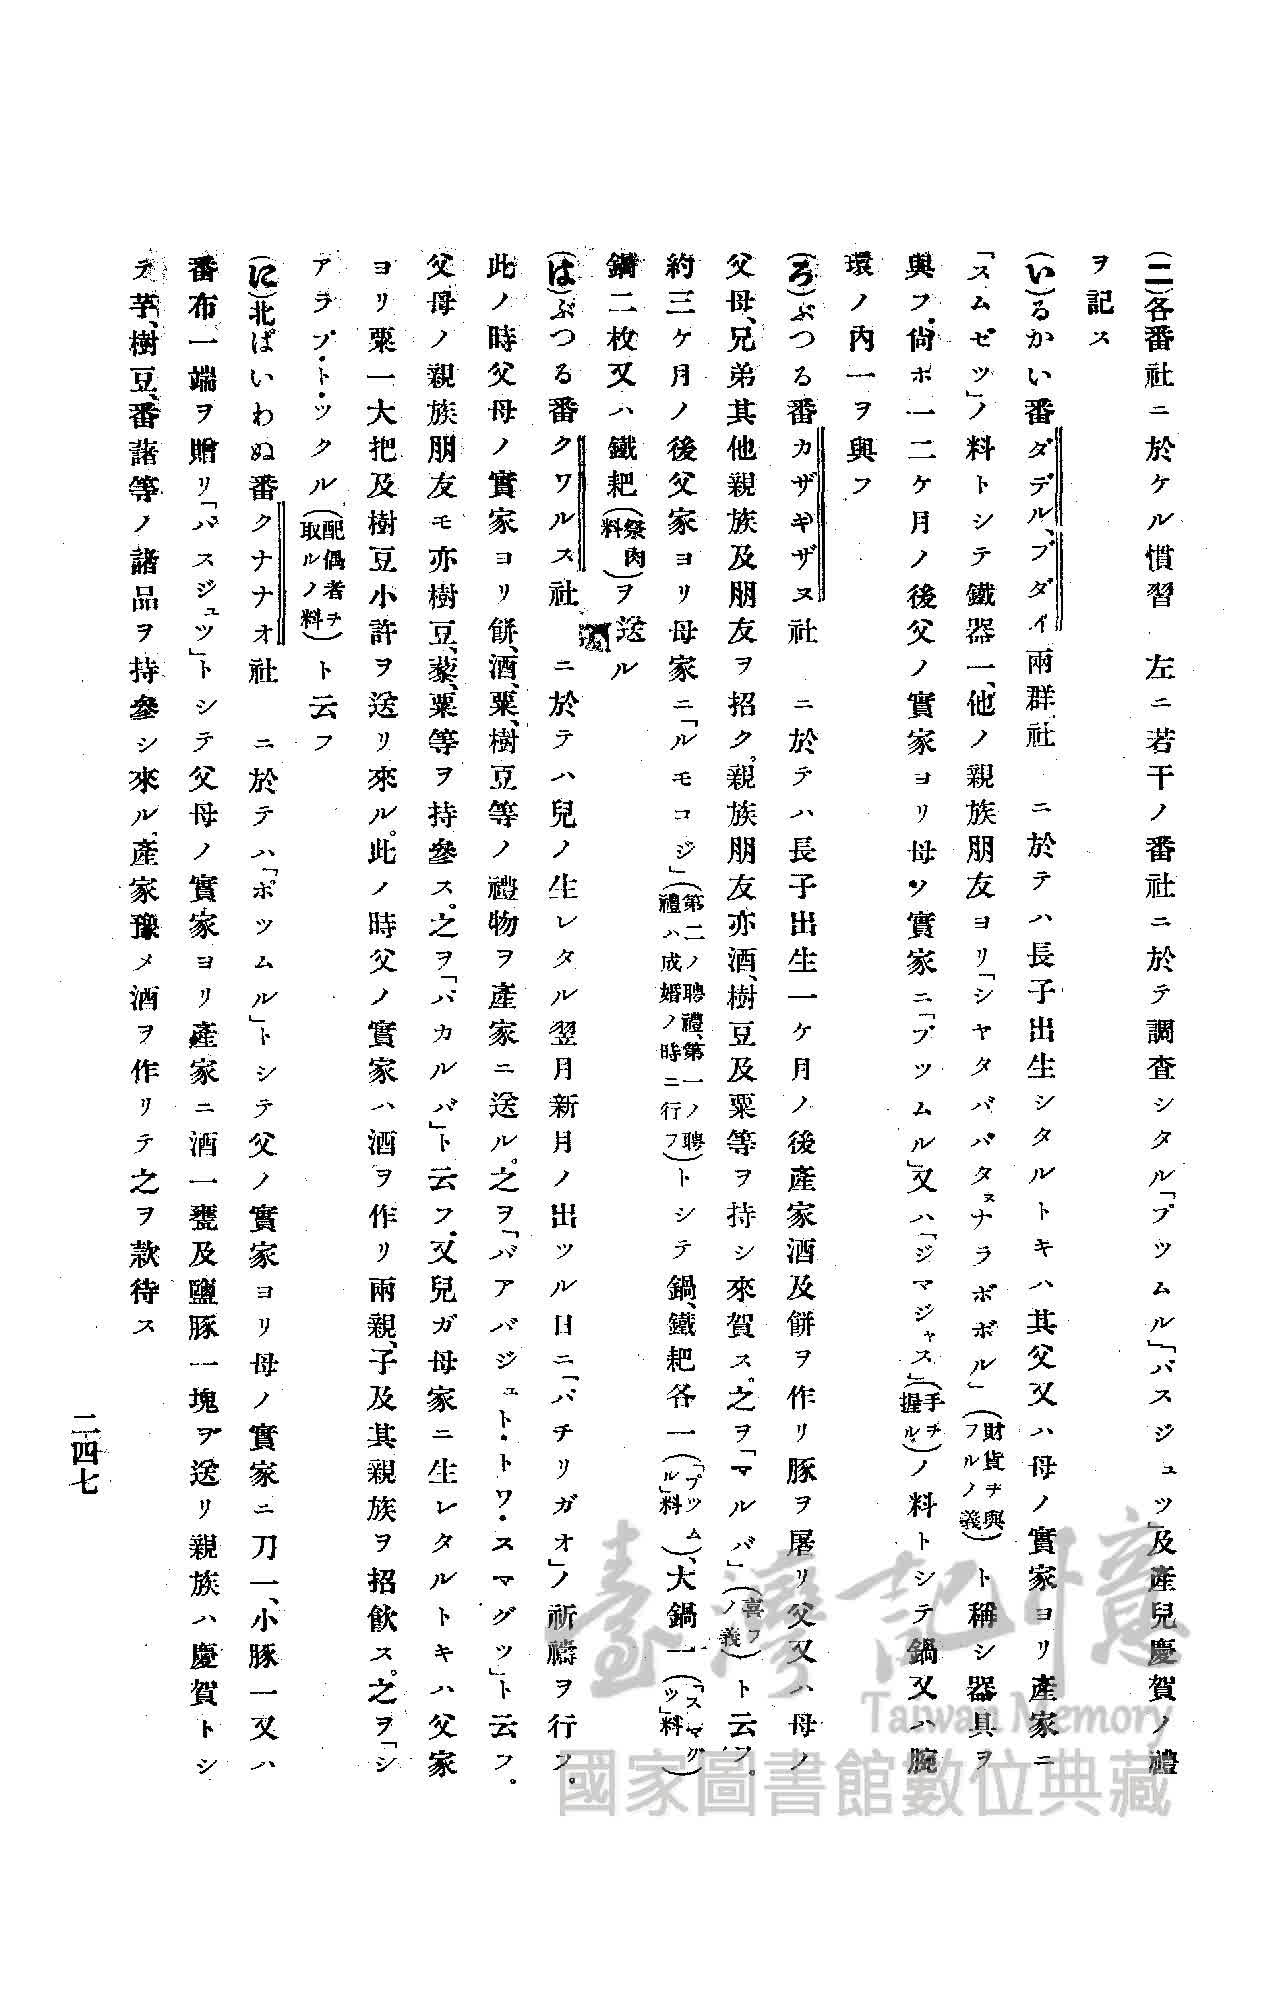 (二)各番社ニ於ケル慣習　左ニ若干ノ番社ニ於テ調査シタル「プツムル」「パスジュツ」及產兒慶賀ノ禮
ヲ記ス
(い)るかい番ダデル、ブダイ兩群社　ニ於テハ長子出生シタルトキハ其父又ハ母ノ實家ヨリ產家ニ
「スムゼツ」ノ料トシテ鐵器一、他ノ親族朋友ヨリ「シヤタバパタヌナラボボル」(財貨ヲ與フルノ義)ト稱シ器具ヲ
與フ。尙ホ一二ケ月ノ後父ノ實家ヨリ母ノ實家ニ「プツムル」又ハ「ジマジャス」(手ヲ握ル)ノ料トシテ鍋又ハ腕
環ノ內一ヲ與フ
(ろ)ぶつる番カザギザヌ社　ニ於テハ長子出生一ケ月ノ後產家酒及餅ヲ作リ豚ヲ屠リ父又ハ母ノ
父母、兄弟其他親族及朋友ヲ招ク。親族朋友亦酒、樹豆及粟等ヲ持シ來賀ス。之ヲ「マルバ」(喜フノ義)ト云フ。
約三ケ月ノ後父家ヨリ母家ニ「ルモコジ」(第二ノ聘禮、第一ノ聘禮ハ成婚ノ時ニ行フ)トシテ鍋、鐵耙各一(「プツムル」料)、大鍋一(「スマグツ」料)
鍋二枚又ハ鐵耙(祭肉料)ヲ送ル
(は)ぶつる番クワルス社　ニ於テハ兒ノ生レタル翌月新月ノ出ツル日ニ「パチリガオ」ノ祈禱ヲ行フ。
此ノ時父母ノ實家ヨリ餅、酒、粟、樹豆等ノ禮物ヲ產家ニ送ル。之ヲ「パアバジュト・トワ・スマグツ」ト云フ。
父母ノ親族朋友モ亦樹豆、藜、粟等ヲ持參ス。之ヲ「パカルバ」ト云フ。又兒ガ母家ニ生レタルトキハ父家
ヨリ粟一大把及樹豆小許ヲ送リ來ル。此ノ時父ノ實家ハ酒ヲ作リ兩親、子及其親族ヲ招飮ス。之ヲ「シ
アラプ・ト・ツクル(配偶者ヲ取ルノ料)ト云フ
(に)北ぱいわぬ番クナナオ社　ニ於テハ「ポツムル」トシテ父ノ實家ヨリ母ノ實家ニ刀一、小豚一又ハ
番布一端ヲ贈リ「パスジュツ」トシテ父母ノ實家ヨリ產家ニ酒一甕及鹽豚一塊ヲ送リ親族ハ慶賀トシ
テ芋、樹豆、番藷等ノ諸品ヲ持參シ來ル、產家豫メ酒ヲ作リテ之ヲ款待ス
二四七
臺灣記憶
Taiwan Memory
國家圖書館數位典藏